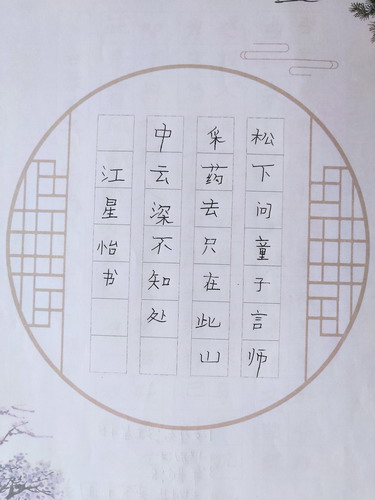 松下问童子言师
采药去只在此山
中云深不知处
江星怡书